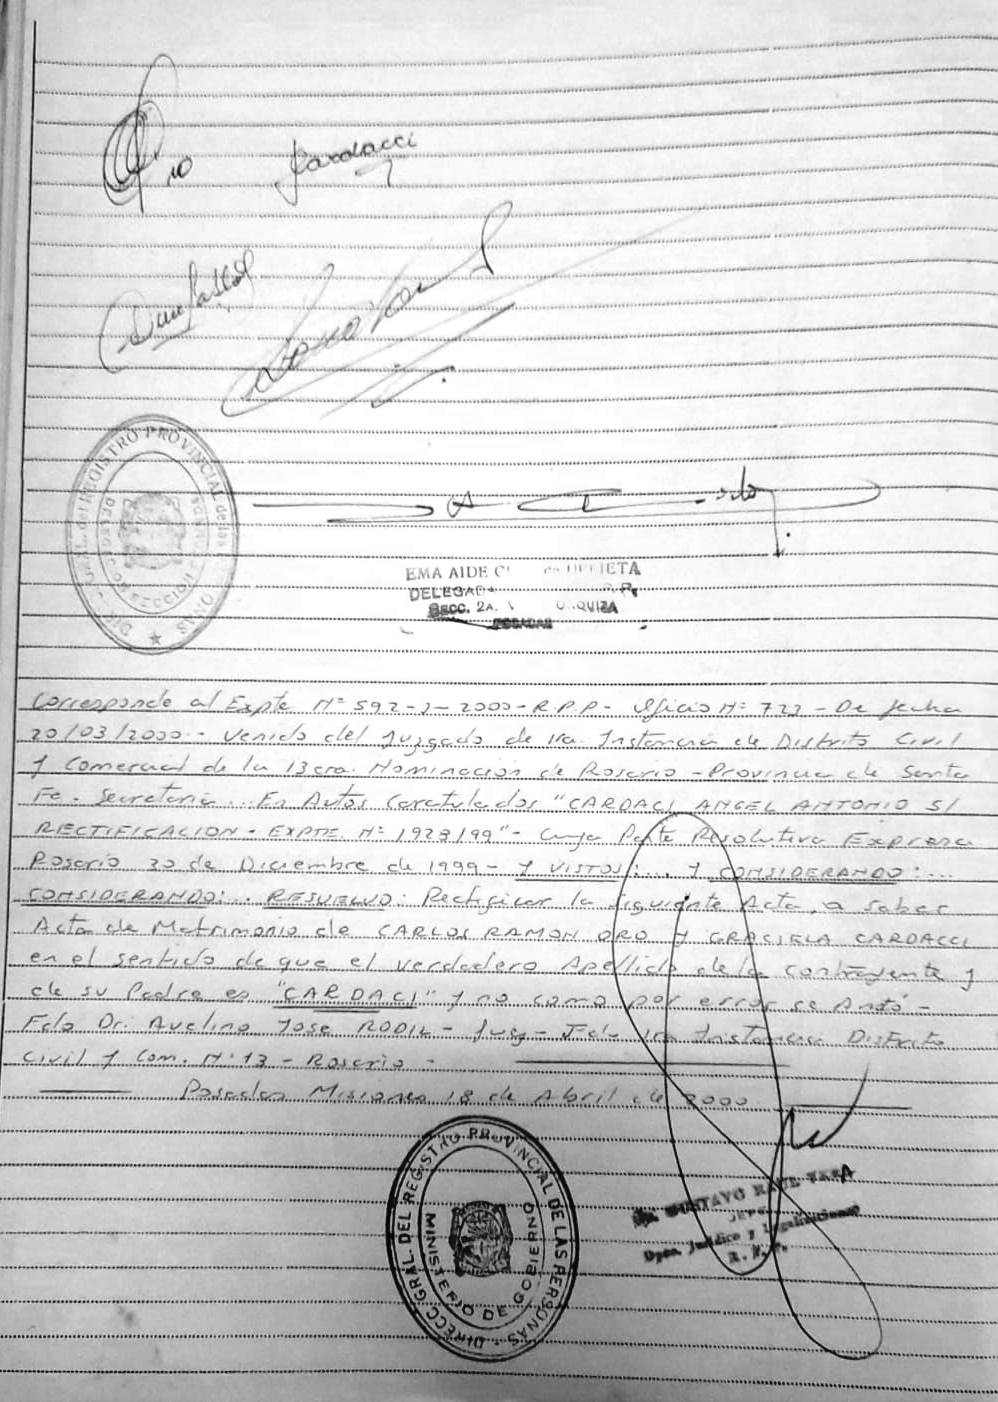 Oro
Cardacci
DIR. GRAL. del REGISTRO PROVINCIAL de las PERSONAS
DELEGACION SECCION SEGUNDA
EMA AIDE
DELEGADA R. P.
SECC. 2A. URQUIZA
POSADAS
Corresponde al Expte Nº 592-J-2000-R.P.P- Oficio Nº 722 - De fecha
20/03/2000 - Venido del Juzgado de 1ra. Instancia de Distrito Civil
y Comercial de la 13era. Nominacion de Rosario - Provincia de Santa
Fe. Secretaria... En Autos Caratulados "CARDACI ANGEL ANTONIO S/
RECTIFICACION - EXPTE. Nº 1928/99" - Cuya Parte Resolutiva Expresa
Rosario 20 de Diciembre de 1999 - Y VISTOS:... Y CONSIDERANDO:...
CONSIDERANDO:... RESUELVO: Rectificar la siguiente Acta, a saber
Acta de Matrimonio de CARLOS RAMON ORO Y GRACIELA CARDACCI
en el sentido de que el verdadero Apellido de la contrayente y
de su Padre es "CARDACI" y no como por error se Anotó -
Fdo Dr. Avelino Jose RODIL - Juez - Jdo 1ra Instancia Distrito
Civil y Com. Nº 13 - Rosario -
Posadas Misiones 18 de Abril de 2000
DIRECC. GRAL. DEL REGISTRO PROVINCIAL DE LAS PERSONAS
MINISTERIO DE GOBIERNO
GUSTAVO RAUL VARA
JEFE
Dpto. Jurídico y Legalizaciones
R. P. P.